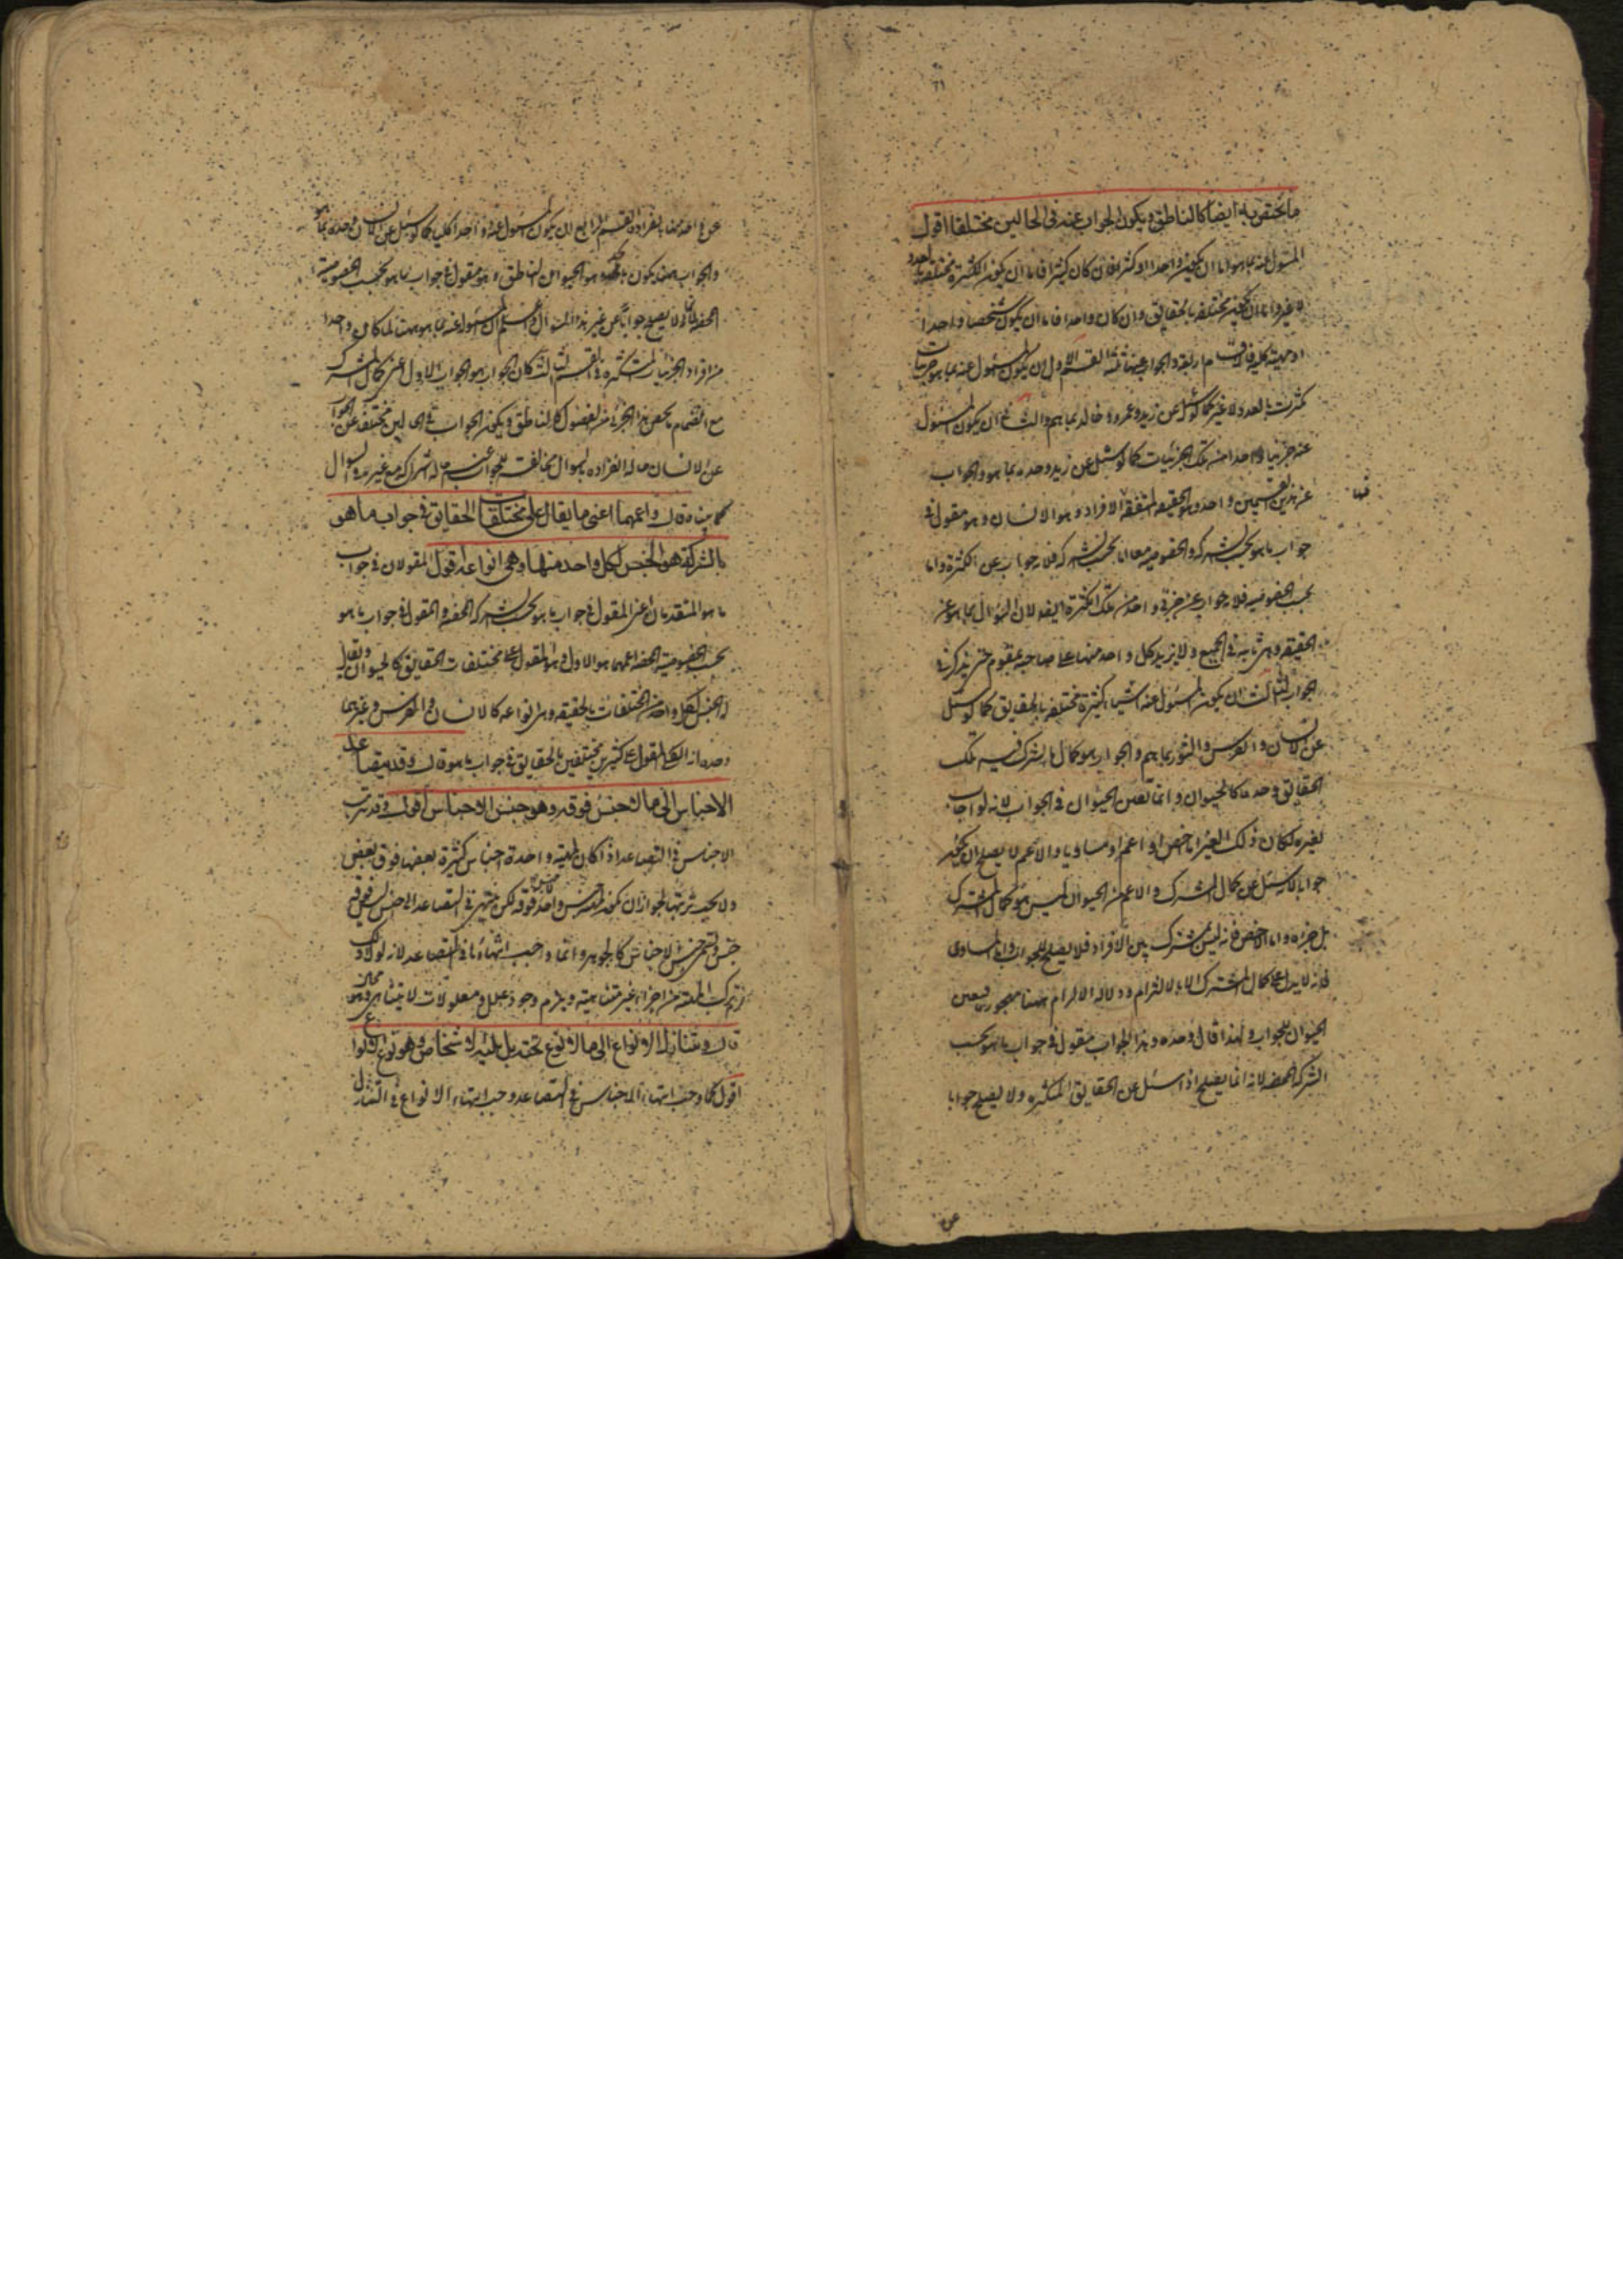 ما يختص به ايضا كالناطق ويكون الجواب عنه في الحالين مختلفا اقول
المسئول عنه بما هو اما ان يكون واحدا او كثيرا فان كان كثيرا فاما ان يكون تلك الكثرة مختلفة بالعدد
لا غير واما ان يكون مختلفة بالحقايق وان كان واحدا فاما ان يكون شخصا واحدا
او مهية كلية فالاقسام اربعة والجواب عنها ثلثة القسم الاول ان يكون المسئول عنه بما هو جزئيات
كثرت بالعدد لا غير كما لو سئل عن زيد وعمرو وخالد بما هم والثاني ان يكون المسئول
عنه جزئيا واحدا من تلك الجزئيات كما لو سئل عن زيد وحده بما هو والجواب
عن هذين القسمين واحد وهو الحقيقة المتفقة الافراد وهو الانسان وهو مقول في
جواب ما هو بحسب الشركة والخصوصية معا اما بحسب الشركة فلانه جواب عن الكثرة واما
بحسب الخصوصية فلانه جواب عن جزئي واحد من تلك الكثرة ايضا لان السؤال بما هو عن
الحقيقة وهي ثابتة في الجميع ولا يزيد كل واحد منها على صاحبه بمقوم حتى يذكر في
الجواب الثالث ان يكون المسئول عنه اشياء كثيرة مختلفة بالحقايق كما لو سئل
عن الانسان والفرس والثور بما هم والجواب هو كمال ما يشترك فيه تلك
الحقايق وحده كالحيوان وانما تعين الحيوان في الجواب لانه لو اجاب
بغيره لكان ذلك الغير اما اخص او اعم او مساويا والاعم لا يصلح ان يكون
جوابا لانه سئل عن كمال المشترك والاعم من الحيوان ليس هو كمال المشترك
بل جزءه واما الاخص فانه ليس بمشترك بين الافراد فلا يصلح للجواب واما المساوي
فانه لا يدل على كمال المشترك الا بالالتزام ودلالة الالتزام ههنا مهجورة فتعين
الحيوان للجواب ولهذا قال وحده وهذا الجواب مقول في جواب ما هو بحسب
الشركة المحضة لانه انما يصلح اذا سئل عن الحقايق المتكثرة ولا يصلح جوابا
عن
عن واحد منها بانفراده القسم الرابع ان يكون المسئول عنه واحدا كليا كما لو سئل عن الانسان وحده بما هو
والجواب عنه يكون بالحد وهو الحيوان الناطق وهو مقول في جواب ما هو بحسب الخصوصية
المحضة لانه لا يصلح جوابا عن غير هذا السؤال واعلم ان المسئول عنه بما هو متى كان واحدا
من افراد الجزئيات المتكثرة في القسم الثالث كان الجواب هو الجواب الاول اعني كمال المشترك
مع انضمام ما يخص هذا الجزئي من الفصول كالناطق ويكون الجواب في الحالين مختلفا عن الجواب
عن الانسان حالة انفراده بالسؤال مخالف للجواب عنه حالة اشتراكه مع غيره في السوال
كما بيناه قال واعمهما اعني ما يقال على مختلفات الحقايق في جواب ما هو
بالشركة هو الجنس لكل واحد منها وهي انواعه اقول المقولان في جواب
ما هو المتقدمان اعني المقول في جواب ما هو بحسب الشركة المحضة والمقول في جواب ما هو
بحسب الخصوصية المحضة اعمهما هو الاول وهو المقول على مختلفات الحقايق كالحيوان ويقال
له الجنس لكل واحد من المختلفات بالحقيقة وهي انواعه كالانسان والفرس وغيرهما
وحده انه الكلي المقول على كثيرين مختلفين بالحقايق في جواب ما هو قال وقد يتصاعد
الاجناس الى ما لا جنس فوقه وهو جنس الاجناس اقول قد تترتب
الاجناس في التصاعد اذا كان لمهية واحدة اجناس كثيرة بعضها فوق بعض
ولا يجب ترتبها لجواز ان يكون جنس واحد لا جنس فوقه لكن متى تترتب في التصاعد الى جنس ليس فوقه
جنس ويسمى جنس الاجناس كالجوهر وانما وجب انتهاءها في التصاعد لانه لولا ذلك
لزم تركب المهية من اجزاء غير متناهية ويلزم وجود علل ومعلولات لا يتناهى وهو محال
قال ويتنازل الانواع الى ما لا نوع تحته بل يليه الاشخاص وهو نوع الانواع
اقول كما وجب انتهاء الاجناس في التصاعد وجب انتهاء الانواع في التنازل